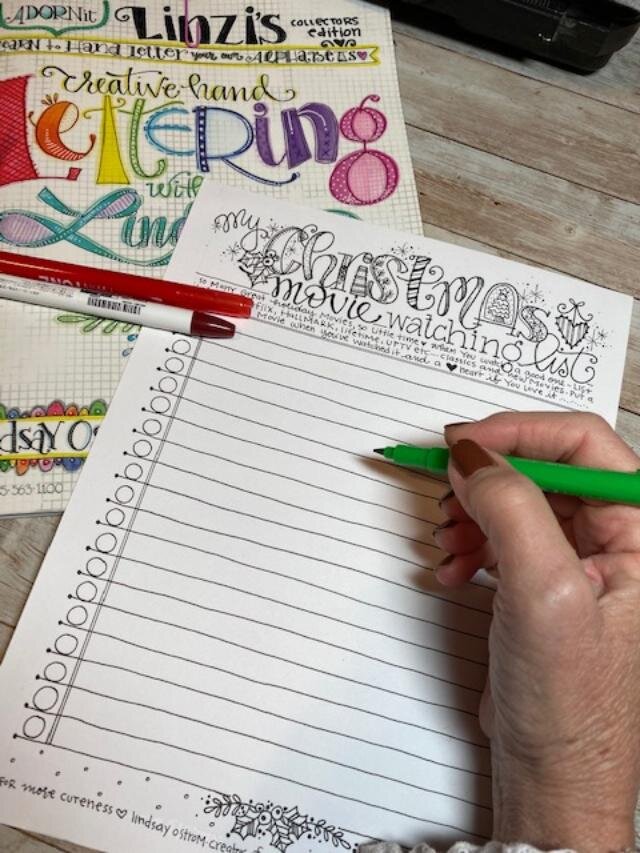 ADORNit Linzi's COLLECTORS edition
LEARN to Hand LETTER your own ALPHABETS
creative-hand
LETTERING
with
my Christmas
movie watching list
so MANY Great holiday Movies, so little time When You watch a good one - List
HALLMARK, lifetime, UPTV etc- classics and new Movies. Put a
Movie when you've watched it-and a ♥ heart if You Love it
FOR more cuteness ♡ lindsay ostrom.creator